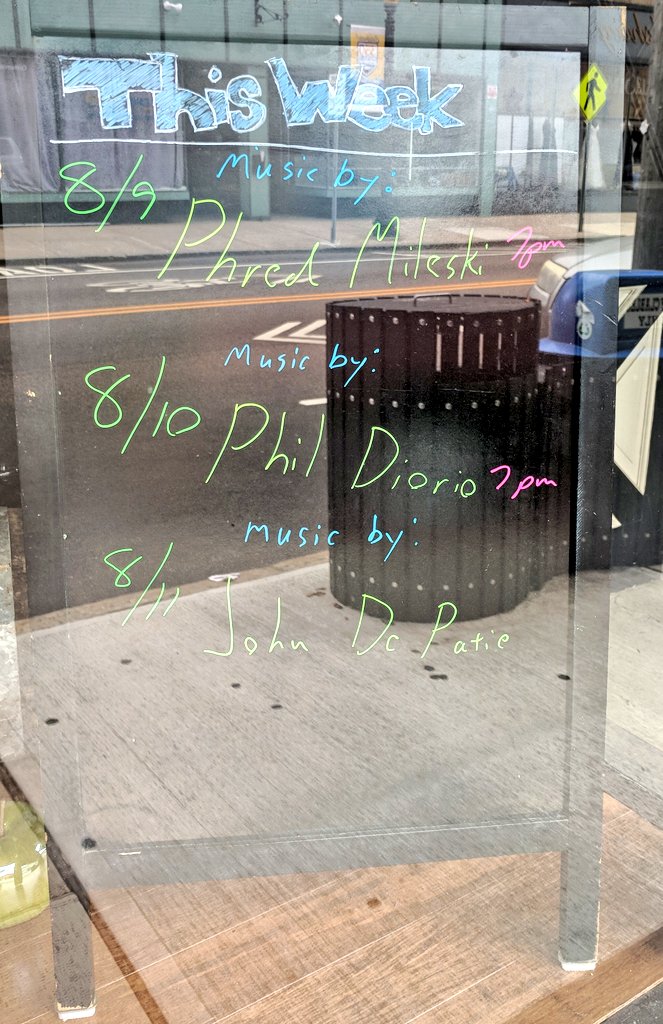 This Week
Music by:
8/9 Phred Mileski 7pm
Music by:
8/10 Phil Diorio 7pm
music by:
8/11 John Dc Patie